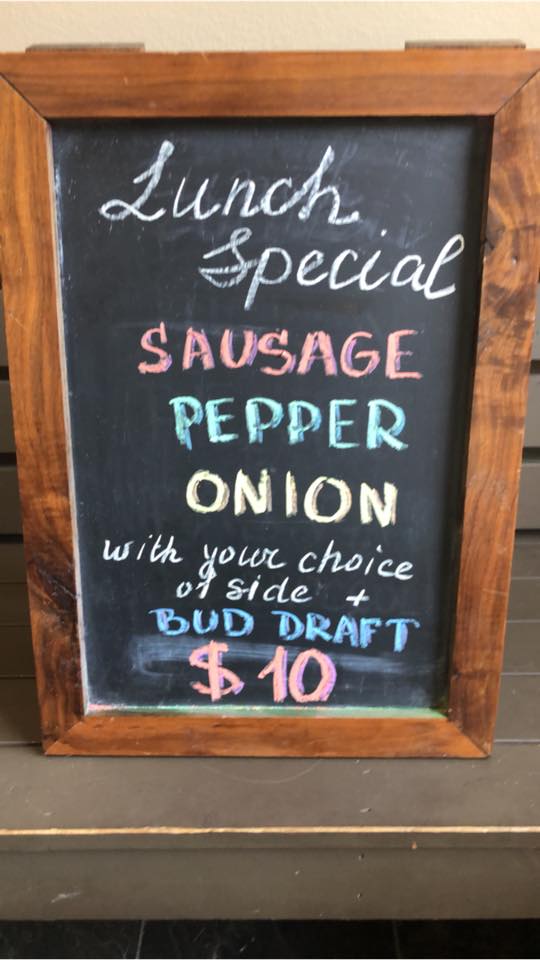 Lunch
Special
SAUSAGE
PEPPER
ONION
with your choice
of side +
BUD DRAFT
$10